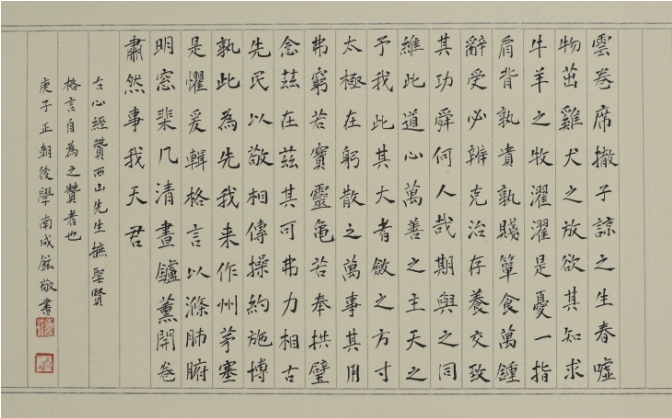 雲卷席撤子諒之生春噓
物茁雞犬之放欲其知求
牛羊之牧濯濯是憂一指
肩背孰貴孰賤簞食萬鍾
辭受必辨克治存養交致
其功舜何人哉期與之同
維此道心萬善之主天之
予我此其大者斂之方寸
太極在躬散之萬事其用
弗窮若寶靈龜若奉拱璧
念茲在茲其可弗力相古
先民以敬相傳操約施博
孰此為先我来作州茅塞
是懼爰輯格言以滌肺腑
明窓棐几清晝鑪薰開卷
肅然事我天君
右心經贊西山先生摭聖賢
格言自為之贊者也
庚子正朝後學南成鉉敬書